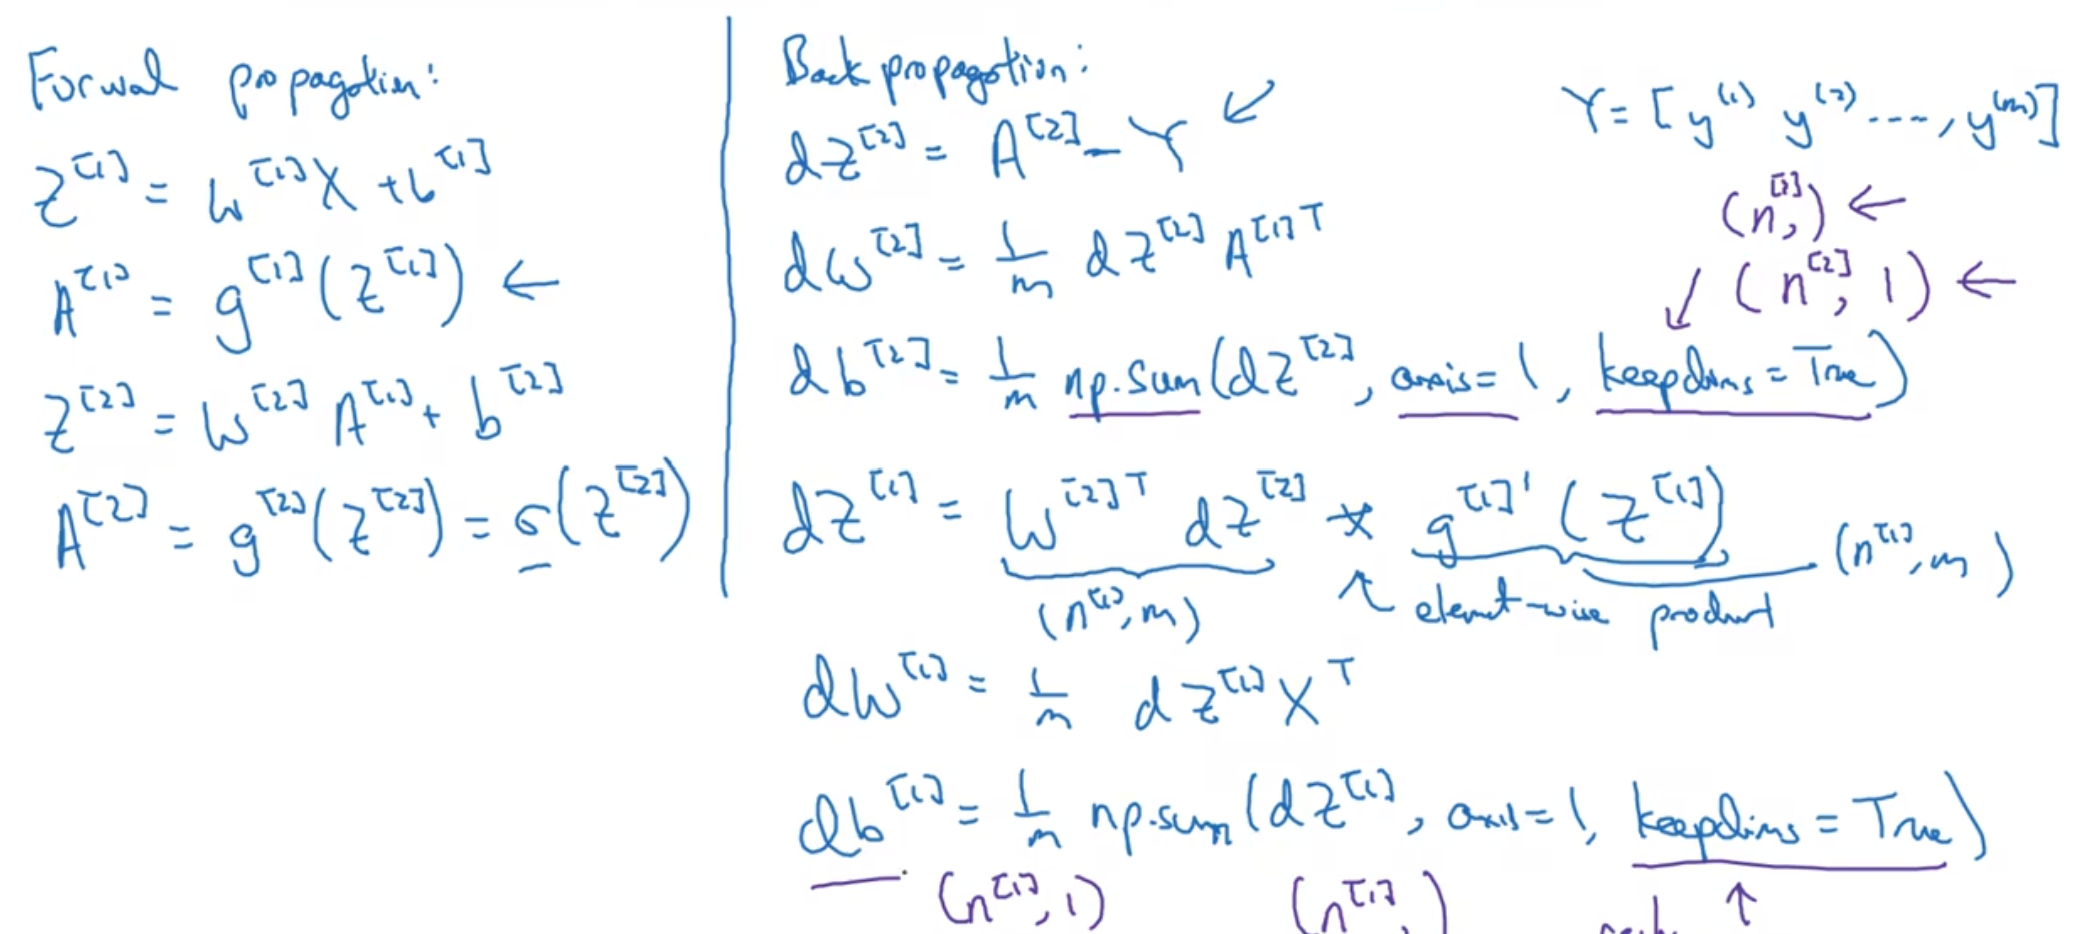 Forwal propagation:
Z^[1] = W^[1] X + b^[1]
A^[1] = g^[1](Z^[1]) ←
Z^[2] = W^[2] A^[1] + b^[2]
A^[2] = g^[2](Z^[2]) = σ(Z^[2])
Back propagation:
dZ^[2] = A^[2] - Y ↙
dW^[2] = 1/m dZ^[2] A^[1]T
db^[2] = 1/m np.sum(dZ^[2], axis=1, keepdims=True)
dZ^[1] = W^[2]T dZ^[2] * g^[1]'(Z^[1])
(n^[1], m) ↑ element-wise product (n^[1], m)
dW^[1] = 1/m dZ^[1] X^T
db^[1] = 1/m np.sum(dZ^[1], axis=1, keepdims=True)
(n^[1], 1) (n^[1],) ↑
Y = [y^(1) y^(2) ...., y^(m)]
(n^[2],) ←
↙ (n^[2], 1) ←